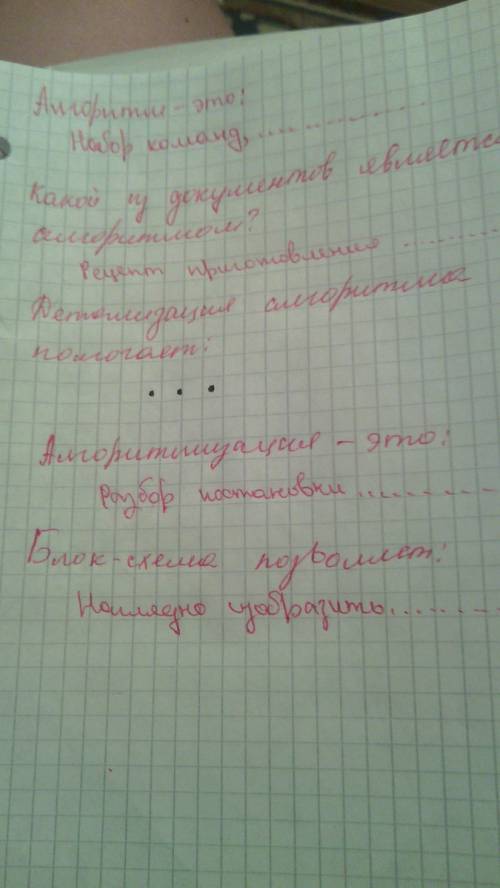 Алгоритм - это:
Набор команд, ................
Какой из документов является
алгоритмом?
Рецепт приготовления ...........
Детализация алгоритма
помогает:
. . .
Алгоритмизация - это:
Разбор постановки ............
Блок-схема позволяет:
Наглядно изобразить...........